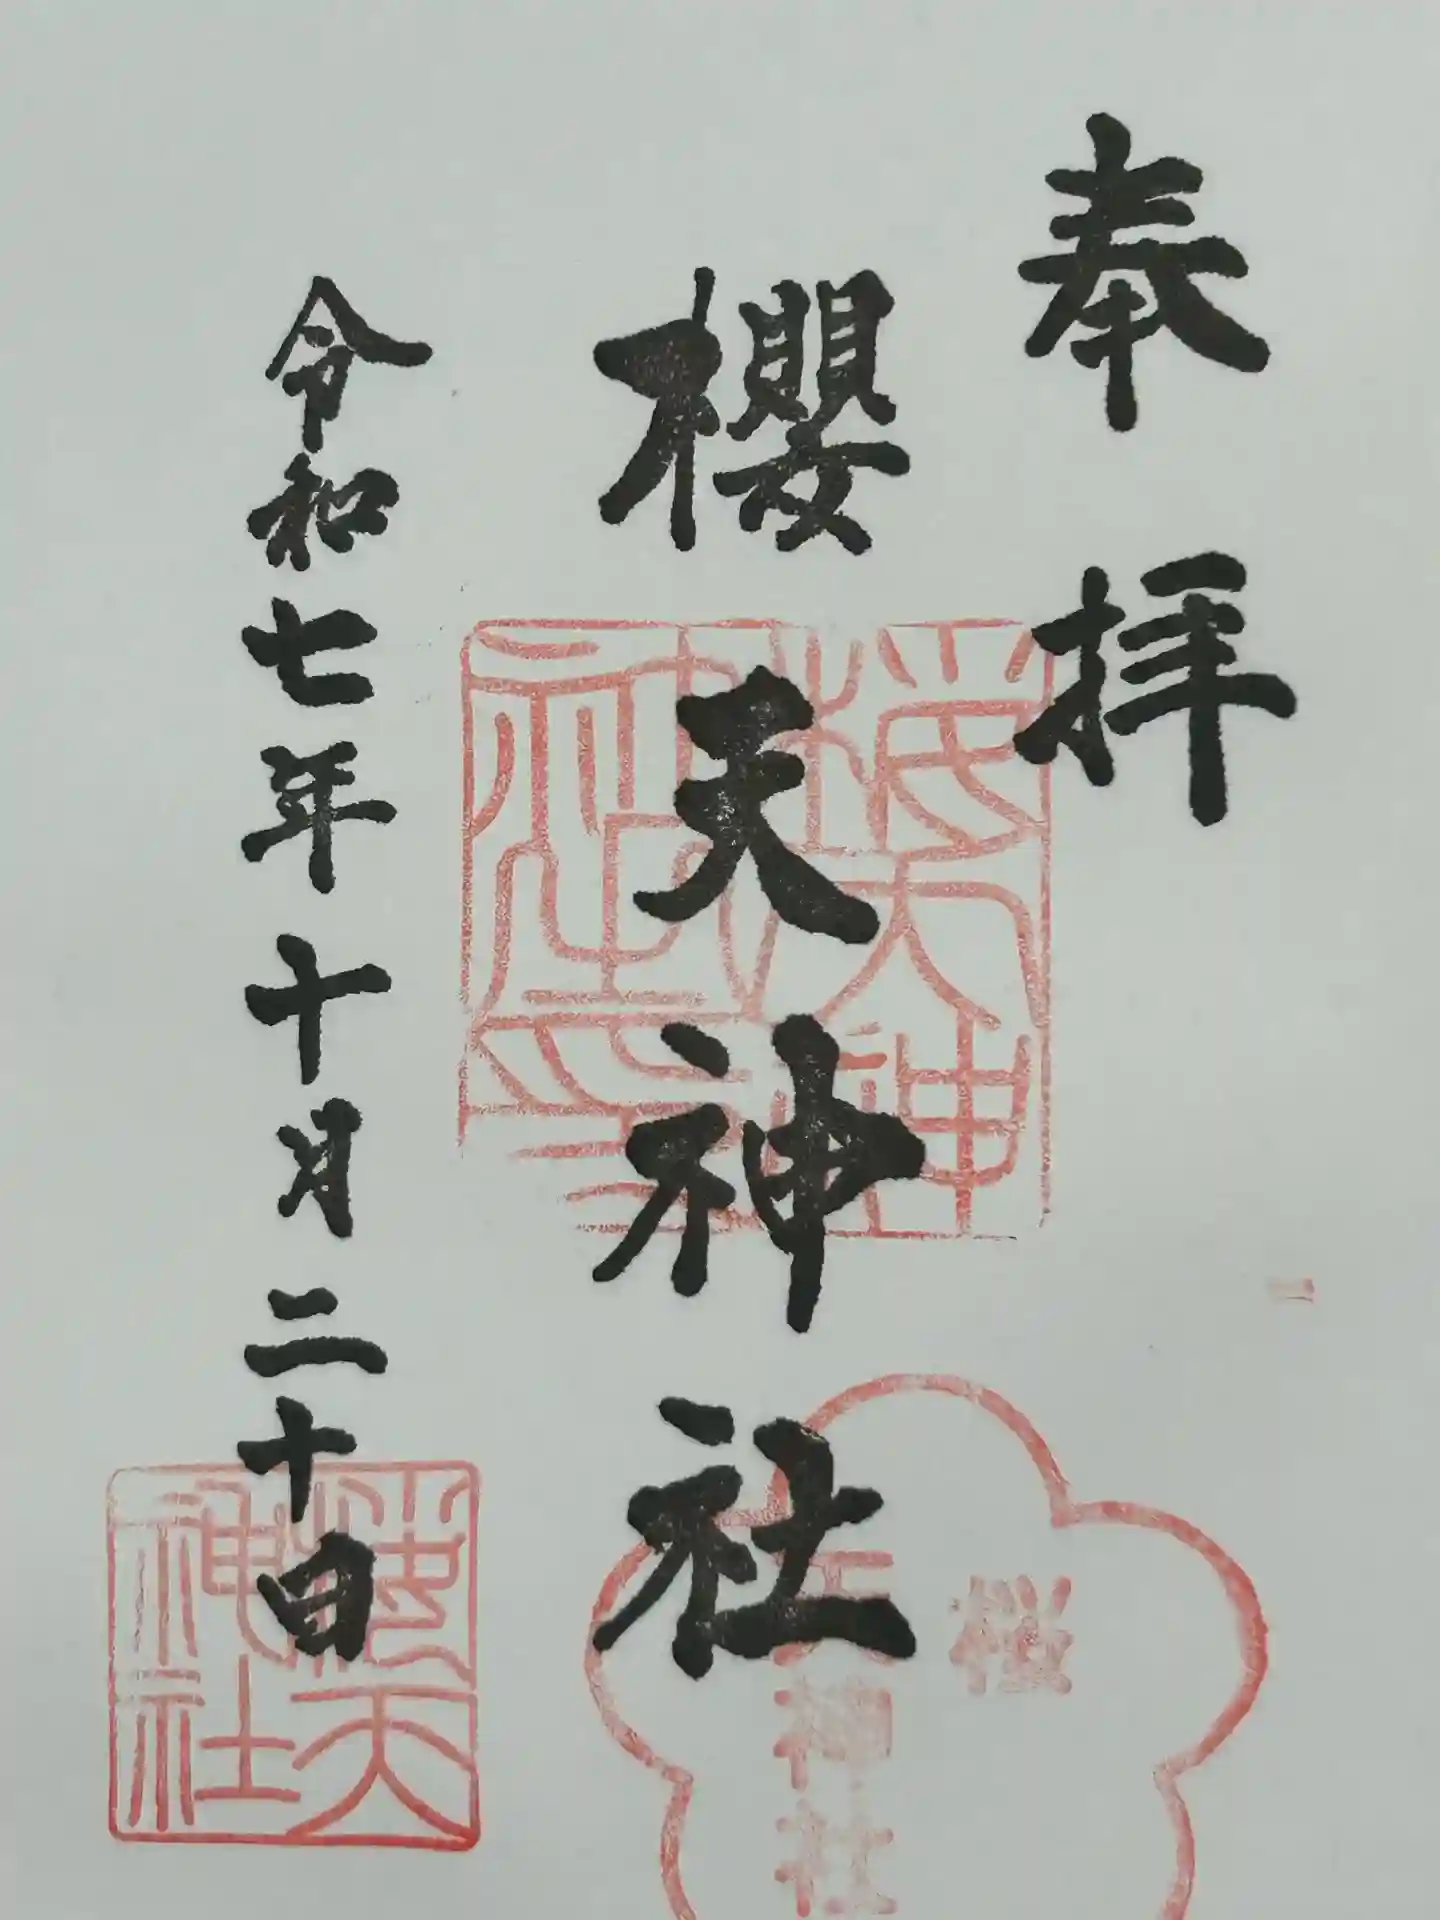 奉拝
櫻天神社
令和七年十月二十日
桜天神社印
桜天神社
桜
天神社